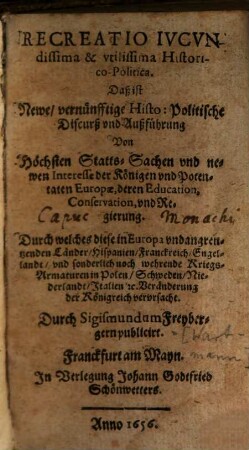 RECREATIO IVCVN
dissima & vtilissima Histori-
co-Politica.
Daß ist
Newe/ vernünfftige Histo: Politische
Discurß vnd Außführung
Von
Höchsten Statts-Sachen vnd ne-
wen Interesse der Königen vnd Poten-
taten Europæ, deren Education,
Conservation, vnd Re-
gierung.
Capuc Monachi
Durch welches diese in Europa vnd angren-
tzenden Länder/ Hispanien/ Franckreich/ Engel-
landt/ vnd sonderlich noch wehrende Kriegs-
Armaturen in Polen/ Schweden/ Nie-
derlandt/ Italien ꝛc. Veränderung
der Königreich verursacht.
Durch Sigismundum Freyber-
gern publicirt.
Hart
mann
Franckfurt am Mayn.
In Verlegung Johann Godtfried
Schönwetters.
Anno 1656.